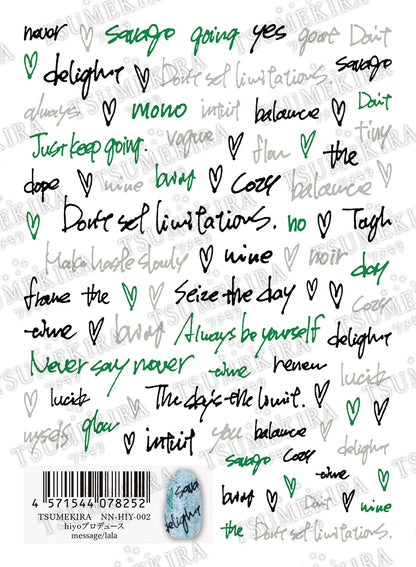 never savage going yes goat Don't
delight Don't set limitations. savage
always mono intuit balance Don't
Just keep going. vague flow the tiny
dope nine burst cozy balance
Don't set limitations. no Tagh
Make haste slowly nine noir day
frame the Seize the day cozy
wine burst Always be yourself delight
Never say never wine renew lucid
lucid The day's the limit.
myself glow intuit you balance delight
savage cozy wine
burst Don't nine
the Don't set limitations.
4 571544 078252
TSUMEKIRA NN-HIY-002
hiyoプロデュース
message/lala
sava
delight
TSUMEKIRA